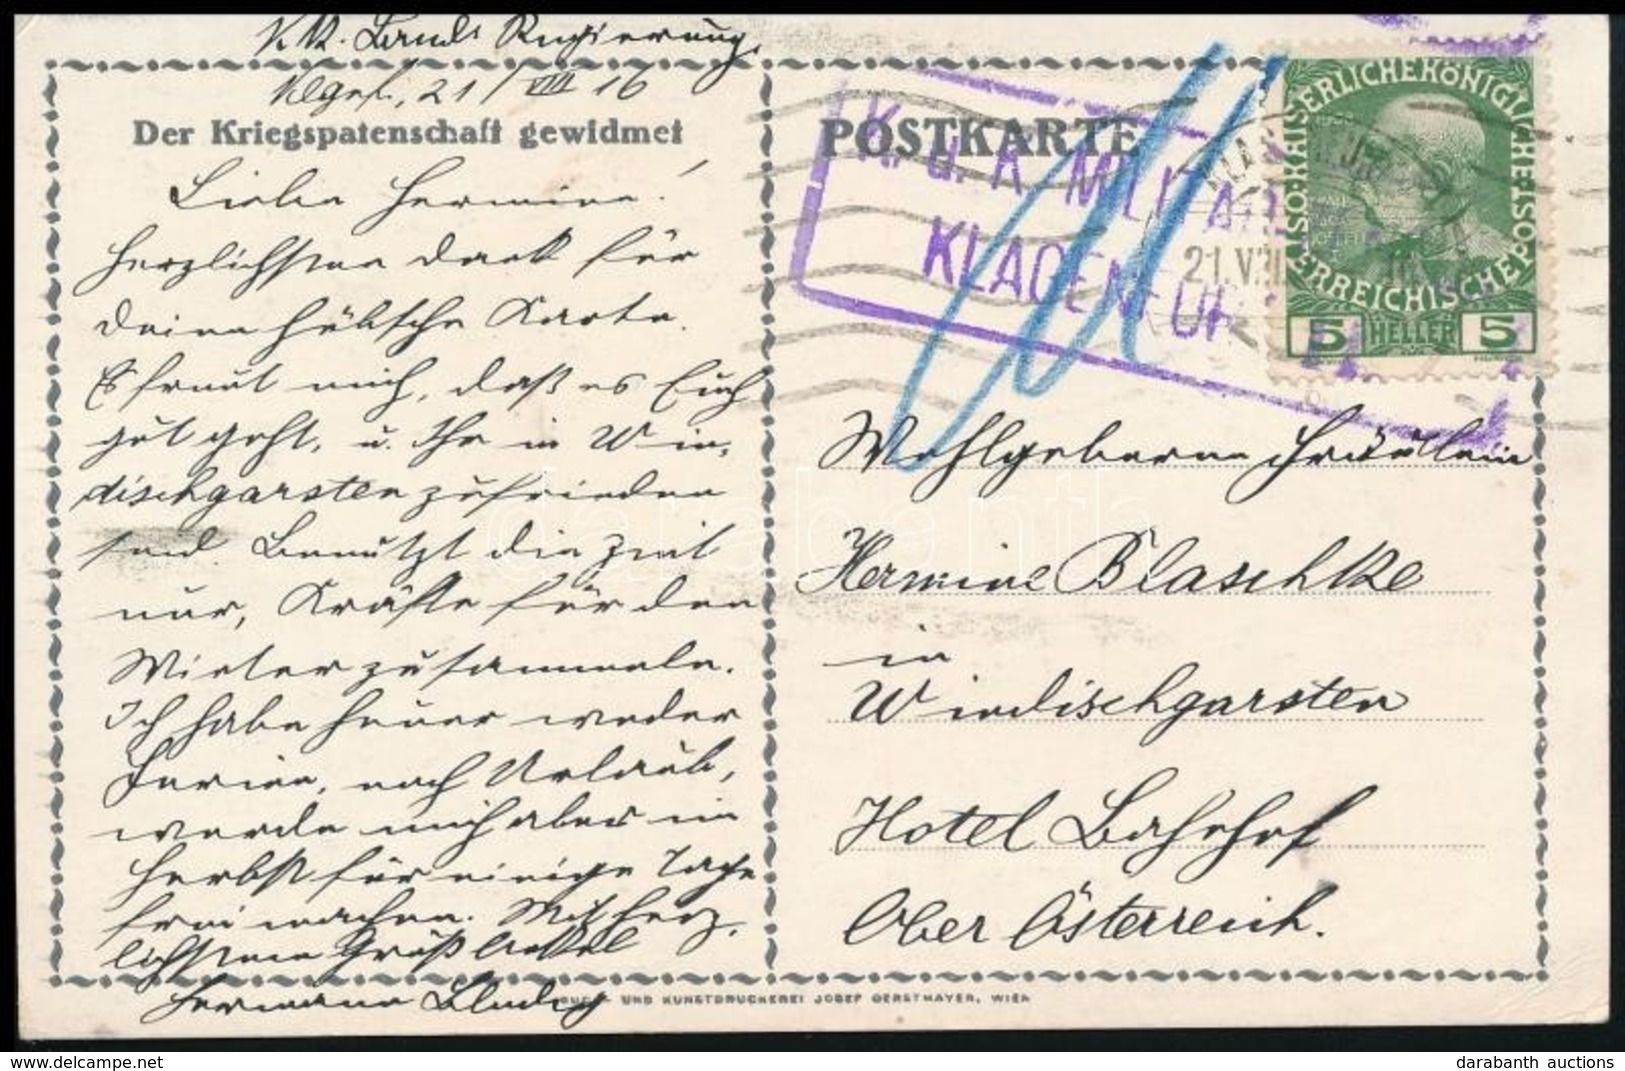 K.K. Landes Regierung,
Klgnf., 21/VIII 16
Der Kriegspatenschaft gewidmet
Liebe Hermine!
Herzlichsten Dank für
Deine hübsche Karte.
Es freut mich, daß es Euch
gut geht, u. Ihr in Win-
dischgarsten zufrieden
seid. Benützt die Zeit
nur, Kräfte für den
Winter zu sammeln.
Ich habe heuer weder
Ferien, noch Urlaub,
werde mich aber im
Herbst für einige Tage
frei machen. Mit herz-
lichsten Grüß
Hermann
POSTKARTE
K. u. K. MILITÄR
KLAGENFUR
21.VIII
KAISERLICHE KÖNIGLICHE
ÖSTERREICHISCHE POST
5 HELLER 5
Wohlgeboren Fräulein
Hermine Blaschke
in
Windischgarsten
Hotel Bahnhof
Ober Österreich.
UND KUNSTDRUCKEREI JOSEF GERSTMAYER, WIEN
darabanth
www.delcampe.net
darabanth auctions